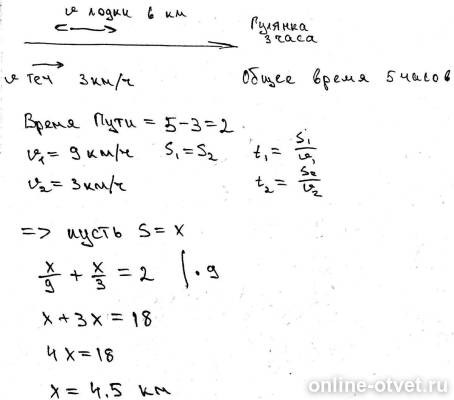 v лодки 6 км
Гулянка
3 часа
v теч 3 км/ч
Общее время 5 часов
Время Пути = 5-3=2
v₁= 9 км/ч S₁=S₂ t₁= S₁/v₁
v₂= 3 км/ч t₂= S₂/v₂
=> пусть S= x
x/9 + x/3 = 2 | · 9
x+3x=18
4x=18
x= 4.5 км
online-otvet.ru